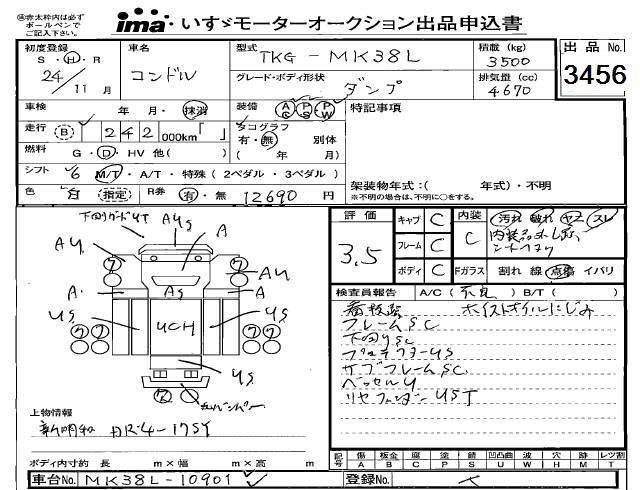 ㊟赤太枠内は必ず
ボールペンで
ご記入下さい。
ima いすゞモーターオークション出品申込書
初度登録
S・H・R
24/11月
車名
コンドル
型式
TKG-MK38L
グレード・ボディ形状
ダンプ
積載 (kg)
3500
排気量 (cc)
4670
出品 No.
3456
車検 年・月・抹消
装備 AC PS PW
特記事項
走行 B 242 000km「 」
タコグラフ
有・無 別体
( 年 月)
燃料 G・D・HV 他( )
シフト 6 M/T・A/T・特殊(2ペダル・3ペダル)
架装物年式:( 年式)・不明
※不明の場合は、不明に○をする。
色 白 指定 R券 有・無 12690 円
評価
3.5
キャブ C
フレーム C
ボディ C
内装
C
汚れ 破れ ヤニ スレ
Fガラス 割れ 線 点傷 イバリ
検査員報告 A/C(不良) B/T( )
看板跡 ホイストオイルにじみ
フレームSC
下回りSC
プロテクターUS
サブフレームSC
ベッセルU
リヤフェンダーUST
AUS
AU
A
AU
A
AS
A
US
UCH
US
US
上物情報
新明和
ボディ内寸約 長 m×幅 m×高 m
記号 傷A 板金B 腐C 塗P 錆S 凹凸曲U 波W 穴H メガM レツ割T
車台No. MK38L-10901
登録No.